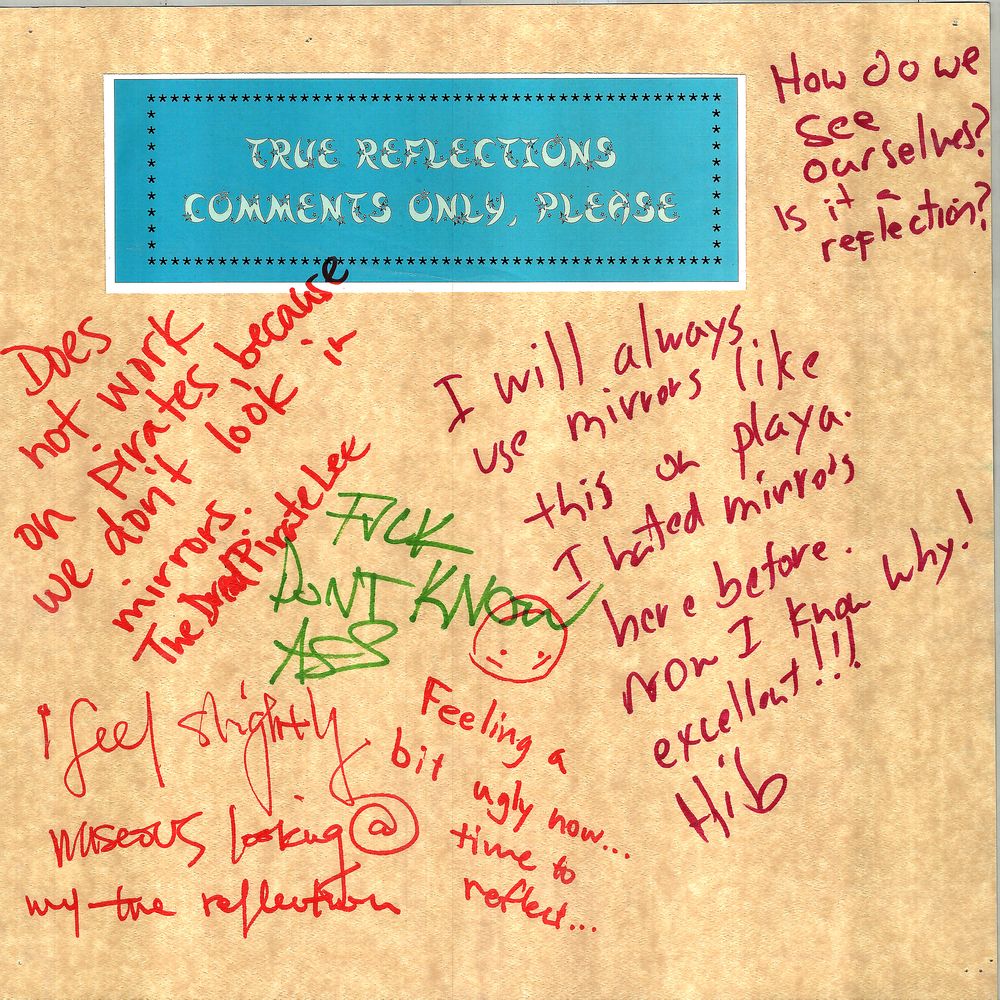 TRUE REFLECTIONS
COMMENTS ONLY, PLEASE
How do we
see
ourselves?
Is it a
reflection?
Does
not work
on pirates because
we don't look in
mirrors.
The DradPirateLee
I will always
use mirrors like
this on playa.
I hated mirrors
here before.
Now I know why!
excellant!!!
Hib
FUCK
DONT KNOW
ASS
I feel slightly
nuseous looking @
my true reflection
Feeling a
bit ugly now...
time to
reflect...